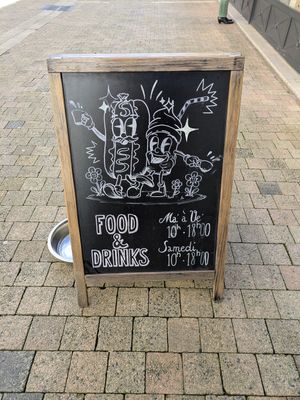 FOOD
&
DRINKS
Ma' à Ve'
10h - 18h00
Samedi
10h - 18h00